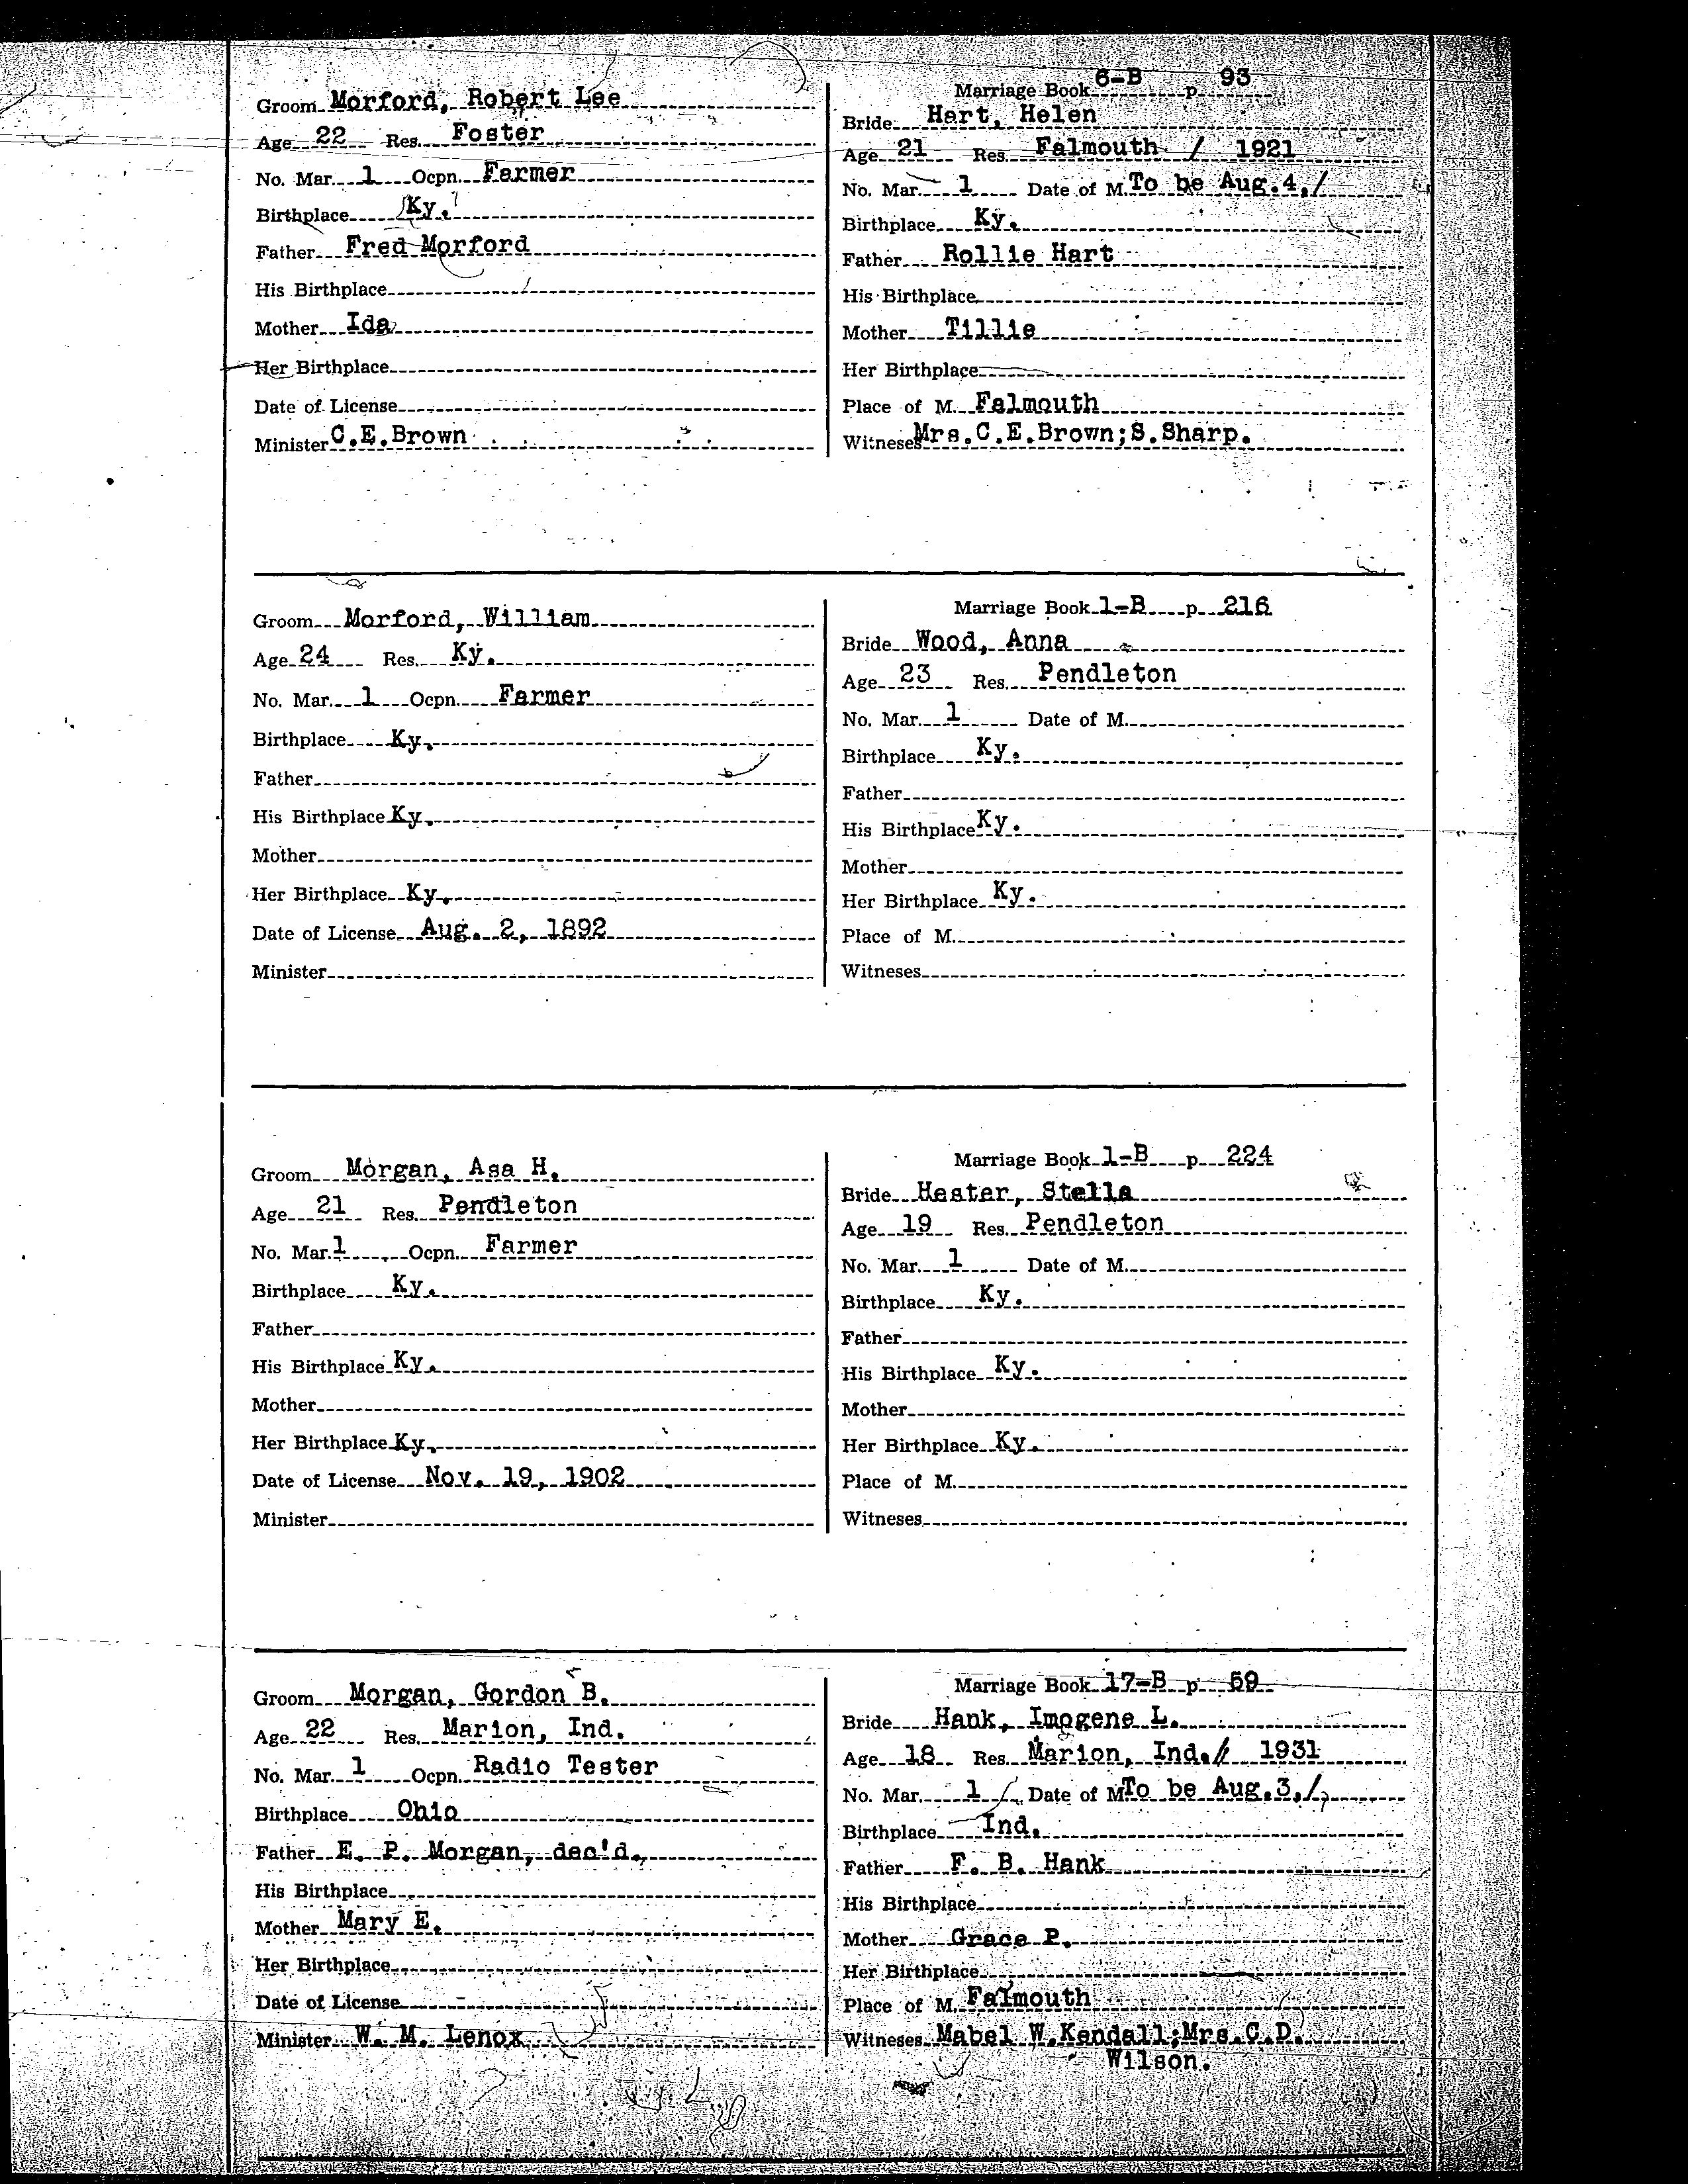 Groom Morford, Robert Lee
Age 22 Res. Foster
No. Mar. 1 Ocpn. Farmer
Birthplace Ky.
Father Fred Morford
His Birthplace
Mother Ida
Her Birthplace
Date of License
Minister C.E.Brown
Marriage Book 6-B p 93
Bride Hart, Helen
Age 21 Res. Falmouth / 1921
No. Mar. 1 Date of M. To be Aug.4,/
Birthplace Ky.
Father Rollie Hart
His Birthplace
Mother Tillie
Her Birthplace
Place of M. Falmouth
Witneses Mrs.C.E.Brown;S.Sharp.
Groom Morford, William
Age 24 Res. Ky.
No. Mar. 1 Ocpn. Farmer
Birthplace Ky.
Father
His Birthplace Ky.
Mother
Her Birthplace Ky.
Date of License Aug. 2, 1892
Minister
Marriage Book 1-B p 216
Bride Wood, Anna
Age 23 Res. Pendleton
No. Mar. 1 Date of M.
Birthplace Ky.
Father
His Birthplace Ky.
Mother
Her Birthplace Ky.
Place of M.
Witneses
Groom Morgan, Asa H.
Age 21 Res. Pendleton
No. Mar. 1 Ocpn. Farmer
Birthplace Ky.
Father
His Birthplace Ky.
Mother
Her Birthplace Ky.
Date of License Nov. 19, 1902
Minister
Marriage Book 1-B p 224
Bride Hester, Stella
Age 19 Res. Pendleton
No. Mar. 1 Date of M.
Birthplace Ky.
Father
His Birthplace Ky.
Mother
Her Birthplace Ky.
Place of M.
Witneses
Groom Morgan, Gordon B.
Age 22 Res. Marion, Ind.
No. Mar. 1 Ocpn. Radio Tester
Birthplace Ohio
Father E. P. Morgan, dec'd.,
His Birthplace
Mother Mary E.
Her Birthplace
Date of License
Minister W. M. Lenox
Marriage Book 17-B p 59
Bride Hank, Imogene L.
Age 18 Res. Marion, Ind./ 1931
No. Mar. 1 Date of M To be Aug.3,/
Birthplace Ind.
Father F. B. Hank
His Birthplace
Mother Grace P.
Her Birthplace
Place of M. Falmouth
Witneses Mabel W.Kendall;Mrs.C.D.
Wilson.